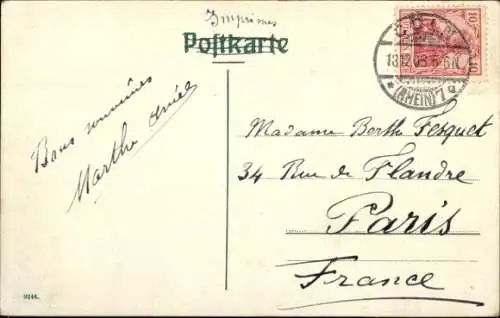 Imprimés
Postkarte
10
CÖLN
18.12.08.5-6N.
* (RHEIN) 7 q
Bons souvenirs
Marthe
Madame Berthe Fesquet
34 Rue de Flandre
Paris
France